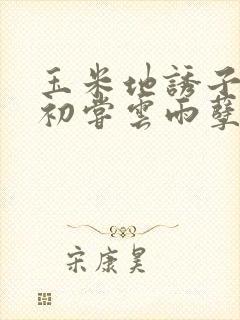 玉米地誘子
初嘗雲雨孽
宋康昊